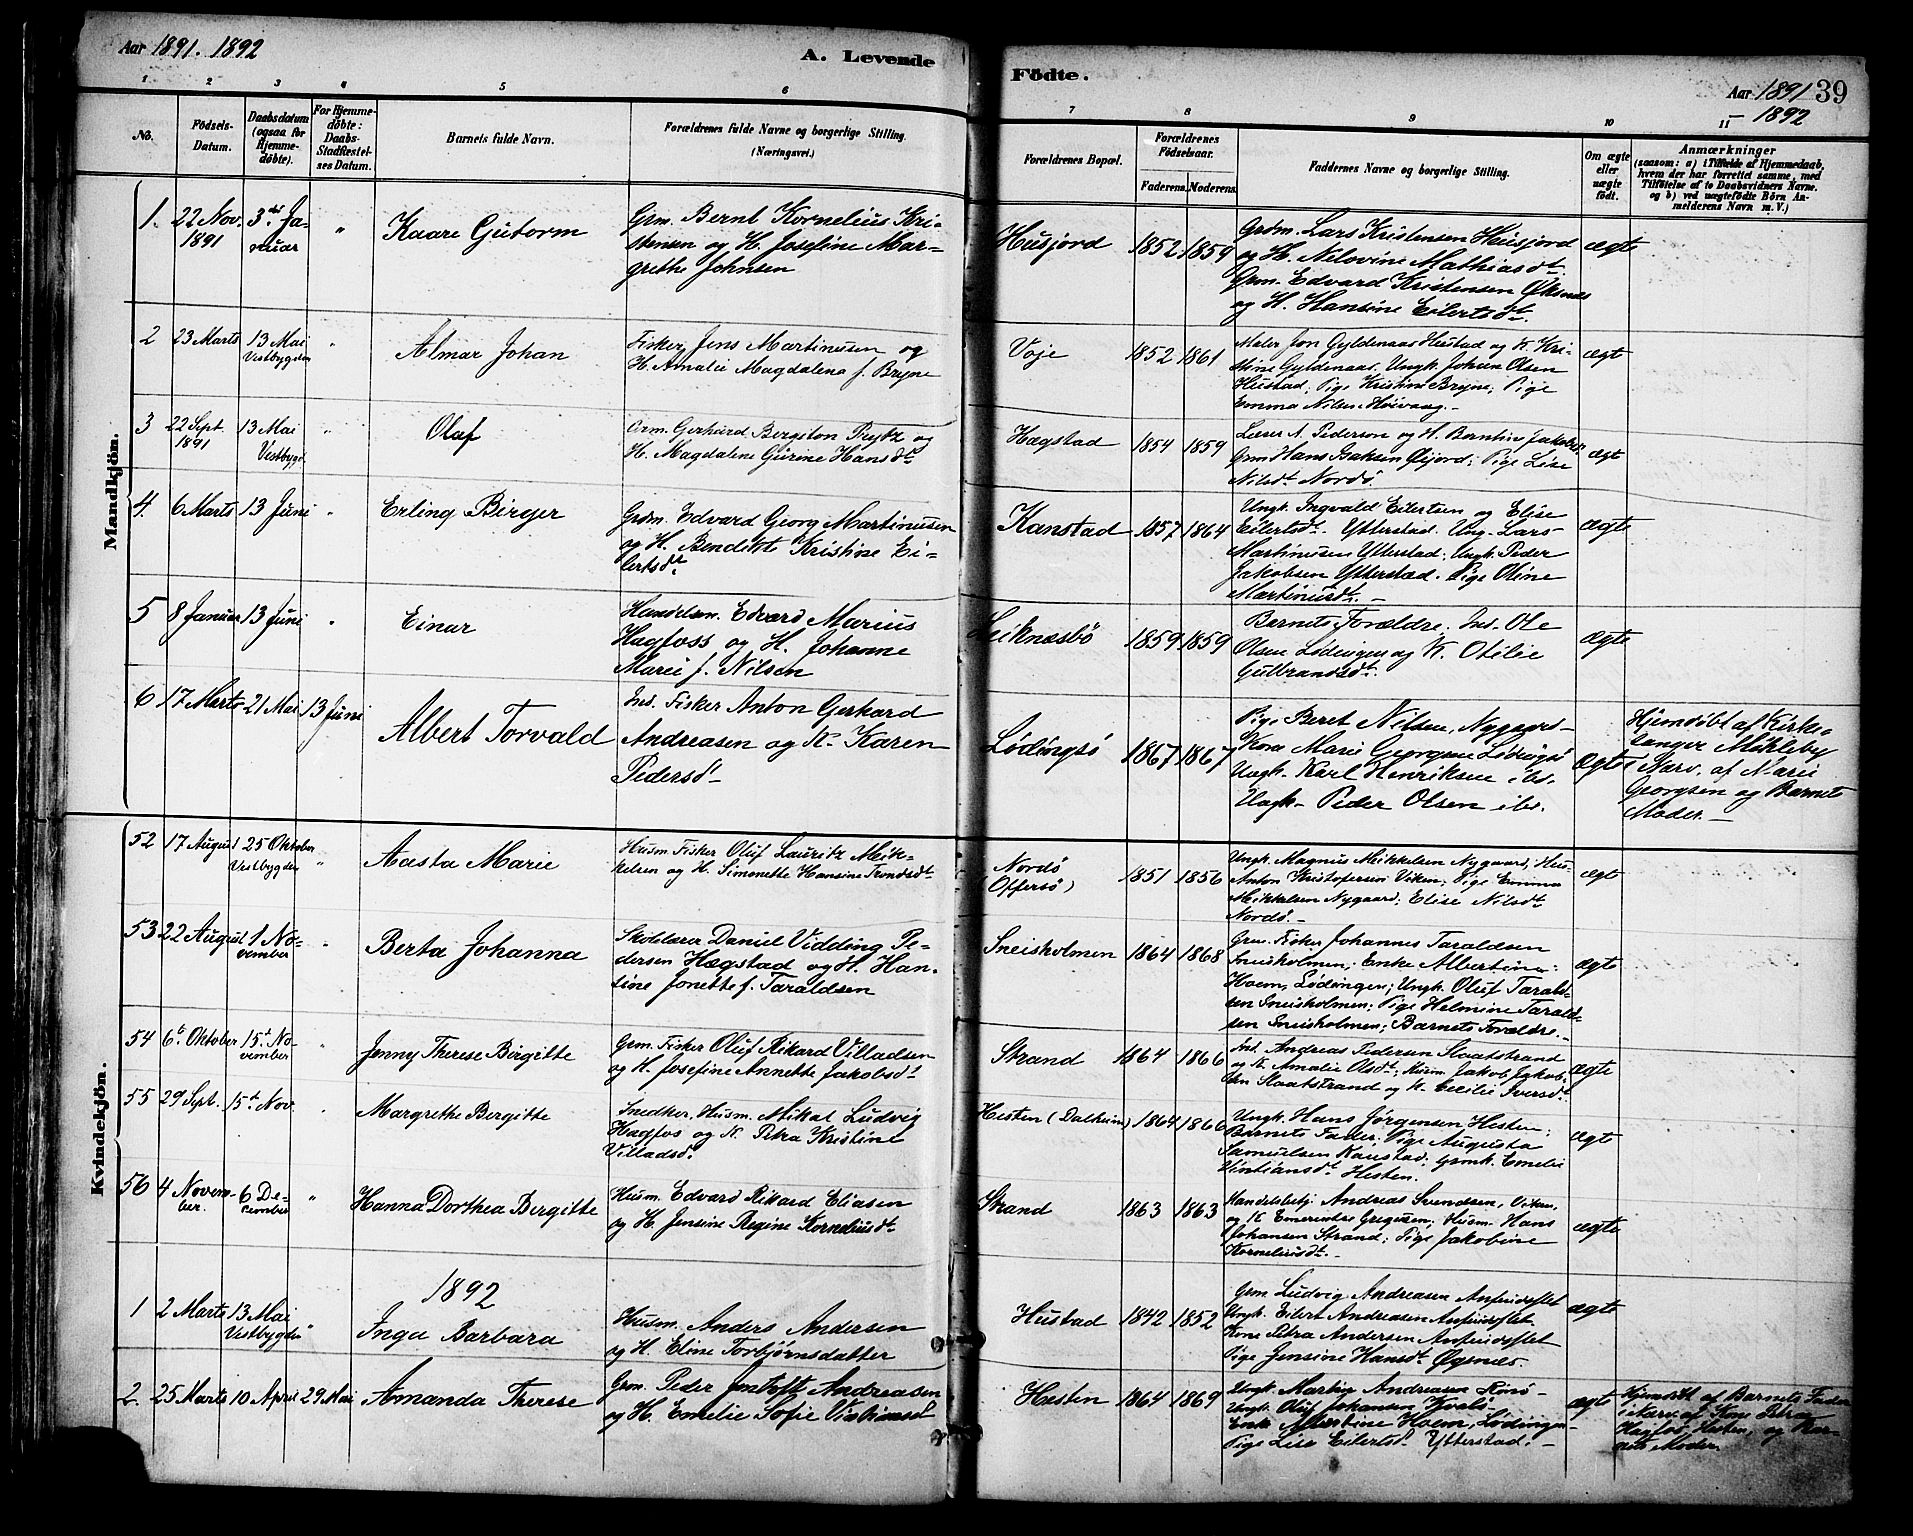 Aar 1891. 1892
A. Levende
Födte.
Aar 1891 39
– 1892
1 2 3 4 5 6 7 8 9 10 11
No.
Fødsels-
Datum.
Daabsdatum
(ogsaa for
Hjemme-
døbte).
For Hjemme-
døbte:
Daabs-
Stadfæstel-
ses Datum.
Barnets fulde Navn.
Forældrenes fulde Navne og borgerlige Stilling.
(Næringsvei.)
Forældrenes Bopæl.
Forældrenes
Födselsaar.
Faderens. Moderens.
Faddernes Navne og borgerlige Stilling.
Om ægte
eller
uægte
født.
Anmærkninger
(saasom: a) i Tilfælde af Hjemmedaab,
hvem der har forrettet samme, med
Tilføielse af to Daabsvidners Navne.
og b) ved uægtefødte Børn An-
melderens Navn m. V.)
Mandkjön.
1. 22 Nov. 3die Ja- " Kaare Gutorm
1891 nuar
Grm. Bernt Kornelius Kri-
stensen og H. Josefine Mar-
grethe Johnsen
Husjord 1852 1859
Grdm. Lars Kristensen Husjord
og H. Nilovine Mathiasdt.
Grm. Edvard Kristensen Øksnæs
og H. Hansine Eilertsdt.
ægte
2 23 Marts 13 Mai " Almar Johan
Vestbygden
Fisker Jens Martinusen og
H. Amalie Magdalena f. Bryne
Voje 1852 1861
Maler Jon Gyldenaas Hustad og K. Kri-
stine Gyldenaas. Ungk. Johan Olsen
Hustad; Pige Kristine Bryne; Pige
Emma Nilsen Høivaag.–
ægte
3 22 Sept. 13 Mai " Olaf
1891 Vestbygd
Grm. Gerhard Bergiton Prytz og
H. Magdalene Gurine Hansdt.
Hægstad 1854 1859
Læser A. Pederson og H. Berntine Jakobs.
Grm Hans Isaksen Øijord; Pige Lise
Nilsdt Nordö.
ægt
4. 6 Marts 13 Juni " Erling Birger
Grdm. Edvard Georg Martinusen
og H. Bendikte Kristine Ei-
lertsdt.
Kanstad 1857 1864
Ungk. Ingvald Eilertsen og Elise
Eilertsdt. Ytterstad. Ung. Lars
Martinusen Ytterstad; Ungk. Peder
Jakobsen Ytterstad. Pige Oline
Martinusdt. –
ægte
5 8 Januar 13 Juni " Einar
Handelsm. Edvard Marius
Hagfoss og H. Johanne
Marei f. Nilsen
Leiknæsbö 1859 1859
Barnets Forældre. Ind. Ole
Olsen Lødingen og K. Otilie
Gulbrandsdt.
ægte
6 17 Marts 21 Mai 13 Juni Albert Torvald
Ind. Fisker Anton Gerhard
Andreasen og K. Karen
Pedersdt
Lødingsö 1867 1867
Pige Beret Nilsen, Nygaard–
Kone Marie Georgsen Lödingsö
Ungk. Karl Henriksen ibd.
Ungk– Peder Olsen ibd.
Ægte
Hjemdöbt af Kirke-
sanger Mökleby
i Nærv. af Marie
Georgsen og Barnets
Moder.–
Kvindekjön.
52 17 August 25 Oktober " Aasta Marie
Vestbygden
Husm. Fisker Oluf Lauritz Mik-
kelsen og H. Simonette Hansine Trondsdt.
Nordö
Offersö) 1851 1856
Ungk. Magnus Mikkelsen Nygaard; Hus–
Anton Kristofersen Viken; Pige Emma
Mikkelsen Nygaard; Elise Nilsdt
Nordö.–
ægt
53 22 August 1 No- " Berta Johanna
vember
Skolelærer Daniel Vidding Pe-
dersen Hægstad og H. Han-
sine Jonette f. Taraldsen
Sneisholmen 1864 1868
Grm. Fisker Johannes Taraldsen
Sneisholmen; Enke Albertina
Hoem, Lødingen; Ungk. Oluf Tarald-
sen Sneisholmen; Pige Helmine Tarald-
sen Sneisholmen; Barnets Forældre.
ægte
54 6te Oktober 15de No- " Jenny Therese Birgitte
vember
Grm. Fisker Oluf Rikard Villadsen
og H. Josefine Annette Jakobsdt
Strand 1864 1866
Ind. Andreas Pedersen Slaatstrand
og K. Amalie Olsdt; Husm Jakob Jakob-
sen Slaatstrand og K. Cecilie Iversdt.
ægte
55 29 Sept. 15de Nov. " Margrethe Bergitte
Snedker, Husm. Mikal Ludvig
Hagfos og K. Petra Kristine
Villadsd.
Hesten (Dalheim) 1864 1866
Ungk. Hans Jörgensen Hesten;
Barnets Fader; Pige Augusta
Samuelsen Kanstad; Grmk. Emelie
Hesten.
ægte
56 4 Novem- 6 De- " Hanna Dorthea Bergitte
ber. cember
Husm. Edvard Rikard Eliasen
og H. Jensine Regine Korneliusdt
Strand 1863 1863
Handelsbetj. Andreas Svendsen, Viken,
og K. Emerentse Gregusen; Husm. Hans
Johansen Strand; Pige Jakobine
Korneliusdt.–
ægte
1892
1 2 Marts 13 Mai " Inga Barbara
Vestbygden
Husm. Anders Andersen
og H. Eline Torbjørnsdatter
Hustad 1842 1852
Grm Ludvig Andreasen
Ungk. Eilert Andreasen
Kone Petra Andersen
Pige Jensine Hansdt. Øgsnæs.
ægte
2. 25 Marts 10 April 29 Mai Amanda Therese
Grm. Peder Jentoft Andreasen
og H. Emelie Sofie
Hesten 1864 1869
Ungk. Martin Andreasen Rinö–
Ungk. Oluf Johansen Kvalö–
Enke Albertine Hoem, Lödingen
Pige Lise Eilertsd. Ytterstad.–
ægte
Hjemdöbt af Barnets Fader
i Nærv. af Kone Petra
Hagfos, Hesten, og Bar-
nets Moder.